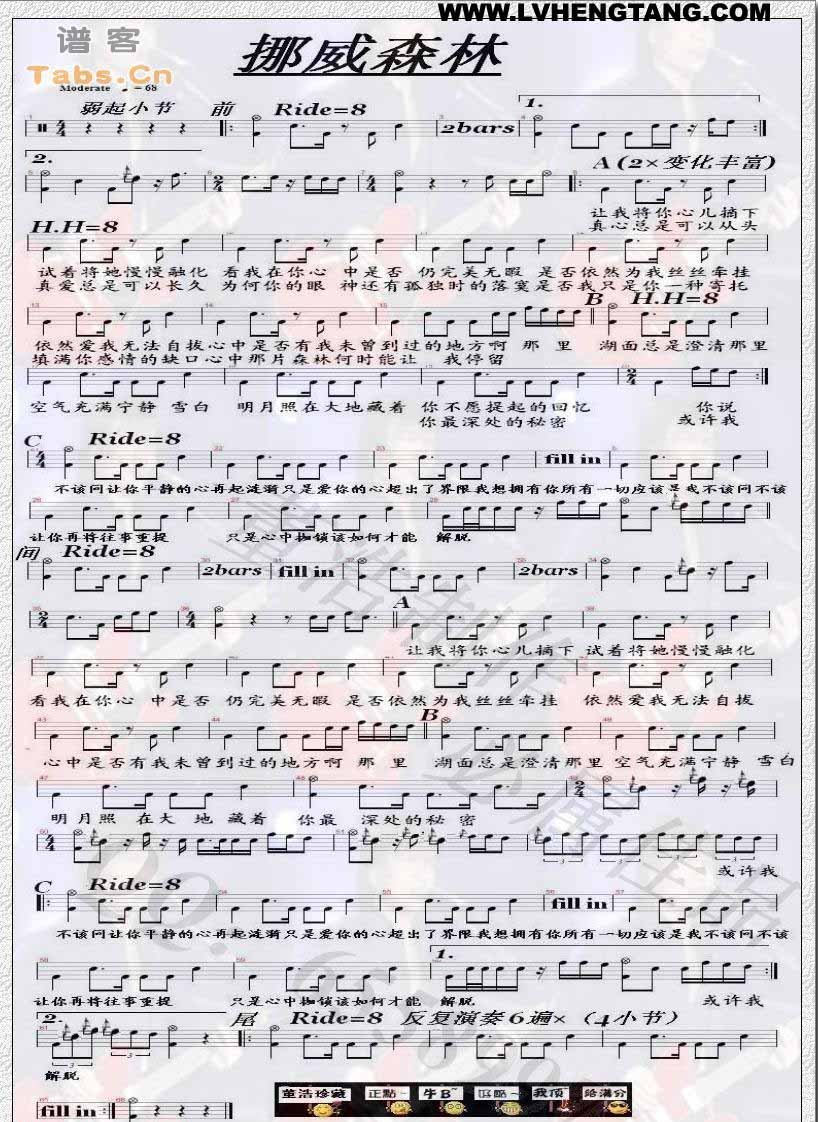 WWW.LVHENGTANG.COM
谱客
Tabs.Cn
挪威森林
Moderate ♩=68
弱起小节 前 Ride=8
2bars
1.
2.
A (2×变化丰富)
让我将你心儿摘下
真心总是可以从头
H.H=8
试着将她慢慢融化 看我在你心 中是否 仍完美无暇 是否依然为我丝丝牵挂
真爱总是可以长久 为何你的眼 神还有孤独时的落寞是否我只是你一种寄托
B H.H=8
依然爱我无法自拔心中是否有我未曾到过的地方啊 那 里 湖面总是澄清那里
填满你感情的缺口心中那片森林何时能让 我停留
空气充满宁静 雪白 明月照在大地藏着 你不愿提起的回忆 你说
你最深处的秘密 或许我
C Ride=8
fill in
不该问让你平静的心再起涟漪只是爱你的心超出了界限我想拥有你所有一切应该是我不该问不该
让你再将往事重提 只是心中枷锁该如何才能 解脱
间 Ride=8
2bars fill in 2bars
A
让我将你心儿摘下 试着将她慢慢融化
看我在你心 中是否 仍完美无暇 是否依然为我丝丝牵挂 依然爱我无法自拔
B
心中是否有我未曾到过的地方啊 那 里 湖面总是澄清那里 空气充满宁静 雪白
明月照 在大 地 藏着 你最 深处的秘密
或许我
C Ride=8
fill in
不该问让你平静的心再起涟漪只是爱你的心超出了界限我想拥有你所有一切应该是我不该问不该
1.
让你再将往事重提 只是心中枷锁该如何才能 解脱 或许我
2. 尾 Ride=8 反复演奏6遍×（4小节）
解脱
fill in
董浩珍藏 正點~ 牛B~ 好酷~ 我顶 给满分